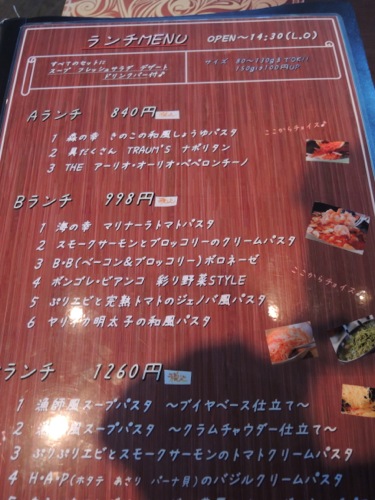 ランチMENU OPEN~14:30(L.O)
すべてのセットに
スープ フレッシュサラダ デザート
ドリンクバー付♪
サイズ 80~130gまでOK!!
150gは100円UP
Aランチ 840円 税込
1 森の幸 きのこの和風しょうゆパスタ
2 具だくさん TRAUM'S ナポリタン
3 THE アーリオ・オーリオ・ペペロンチーノ
ここからチョイス♪
Bランチ 998円 税込
1 海の幸 マリナーラトマトパスタ
2 スモークサーモンとブロッコリーのクリームパスタ
3 B・B(ベーコン&ブロッコリー)ボロネーゼ
4 ボンゴレ・ビアンコ 彩り野菜STYLE
5 ぷりエビと完熟トマトのジェノバ風パスタ
6 ヤリイカ明太子の和風パスタ
ここからチョイス♪
ランチ 1260円 税込
1 漁師風スープパスタ ~ブイヤベース仕立て~
2 漁師風スープパスタ ~クラムチャウダー仕立て~
3 ぷりぷりエビとスモークサーモンのトマトクリームパスタ
4 H・A・P(ホタテ あさり パーナ貝)のバジルクリームパスタ